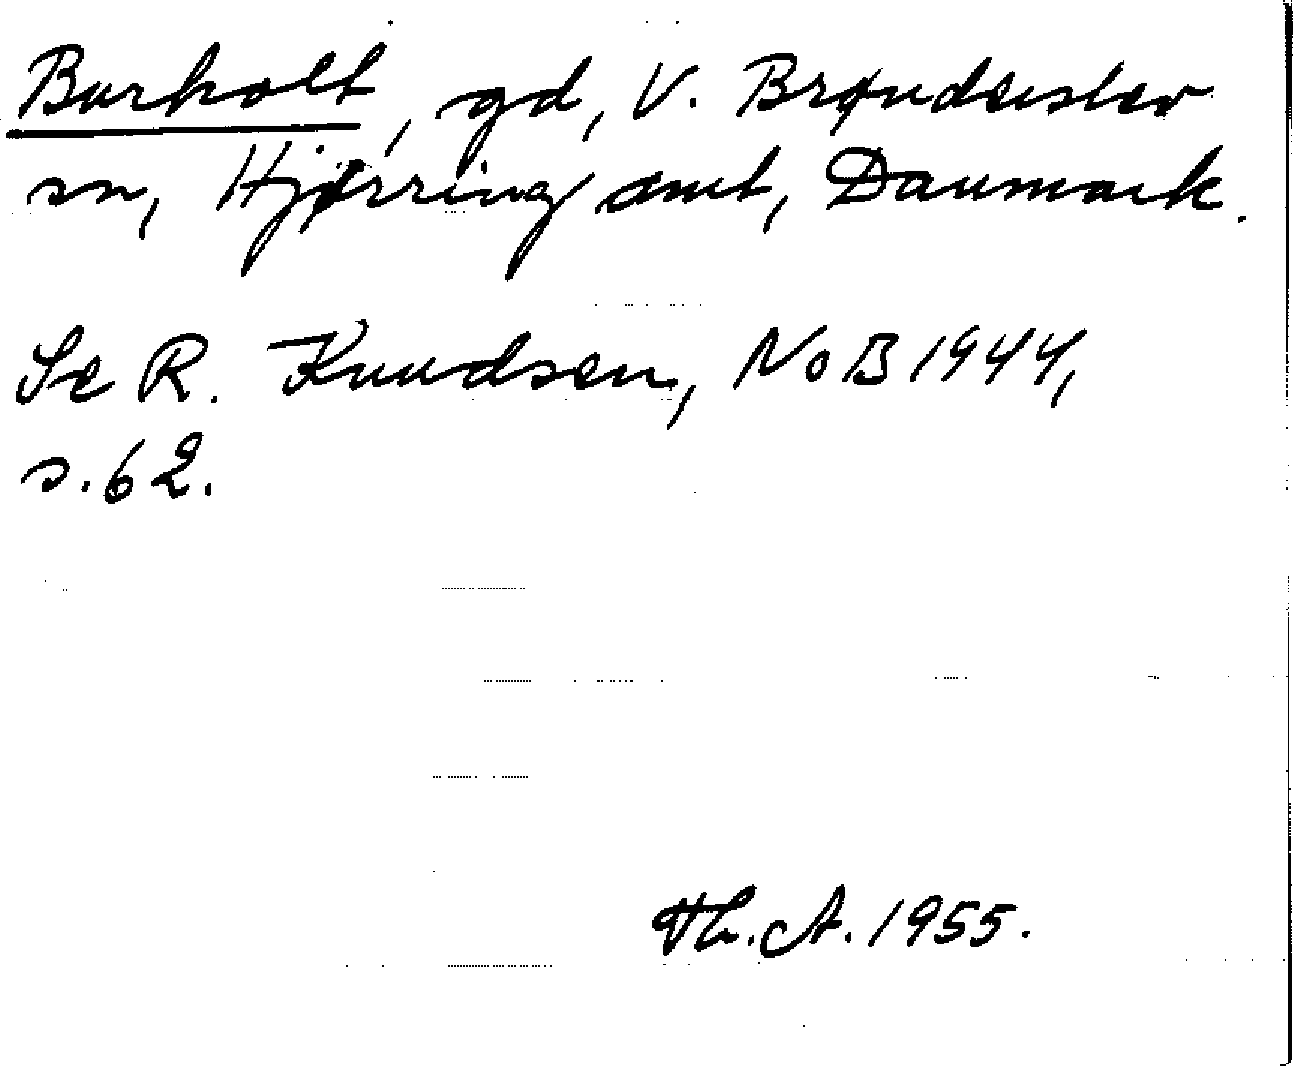 Burholt, gd, V. Brønderslev
sn, Hjørring amt, Danmark.
Se R. Knudsen, NoB 1944,
s. 62.
Th. A. 1955.